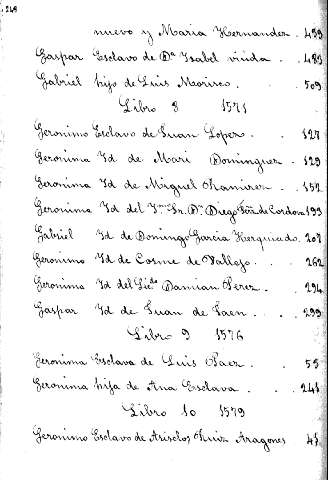 248
nuevo y Maria Hernandez . 459
Gaspar Esclavo de Dª Isabel viuda . 485
Gabriel hijo de Luis Morisco . 509
Libro 8 1571
Geronimo Esclavo de Juan Lopez . . 127
Geronima Id de Mari Dominguez . 129
Geronima Id de Miguel Ramirez . . 152
Geronima Id del Sr. Dn Diego de Cordova 199
Gabriel Id de Domingo Garcia 207
Geronimo Id de Cosme de Vallejo . . 262
Geronima Id del Licdo Damian Perez . . 294
Gaspar Id de Juan de Jaen . . 299
Libro 9 1576
Geronima Esclava de Luis Paez . . 55
Geronima hija de Ana Esclava . . 241
Libro 10 1579
Geronimo Esclavo de Ruiz Aragones 41